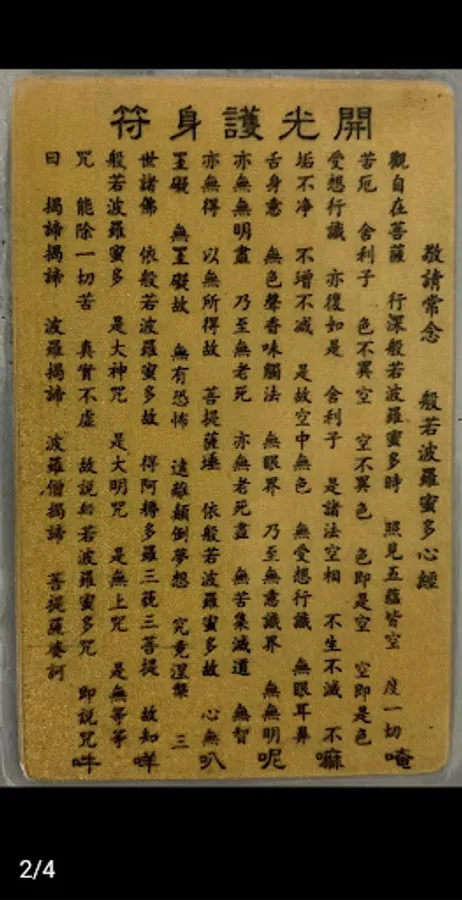 開光護身符
敬請常念 般若波羅蜜多心經
觀自在菩薩 行深般若波羅蜜多時 照見五蘊皆空 度一切
苦厄 舍利子 色不異空 空不異色 色即是空 空即是色
受想行識 亦復如是 舍利子 是諸法空相 不生不滅 不
垢不净 不增不减 是故空中無色 無受想行識 無眼耳鼻
舌身意 無色聲香味觸法 無眼界 乃至無意識界 無無明
亦無無明盡 乃至無老死 亦無老死盡 無苦集滅道 無智
亦無得 以無所得故 菩提薩埵 依般若波羅蜜多故 心無
罣礙 無罣礙故 無有恐怖 遠離顛倒夢想 究竟涅槃 三
世諸佛 依般若波羅蜜多故 得阿耨多羅三藐三菩提 故知
般若波羅蜜多 是大神咒 是大明咒 是無上咒 是無等等
咒 能除一切苦 真實不虛 故説般若波羅蜜多咒 即説咒
曰 揭諦揭諦 波羅揭諦 波羅僧揭諦 菩提薩婆訶
唵嘛呢叭咩吽
2/4